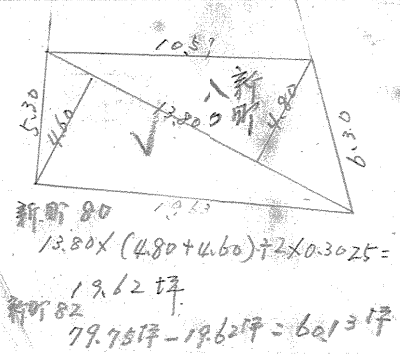 10.57
新町
八0
5.30
4.60
13.80
4.80
6.30
新町 80
13.80×(4.80+4.60)÷2×0.3025=
19.62坪
新町82
79.75坪-19.62坪=60.13坪